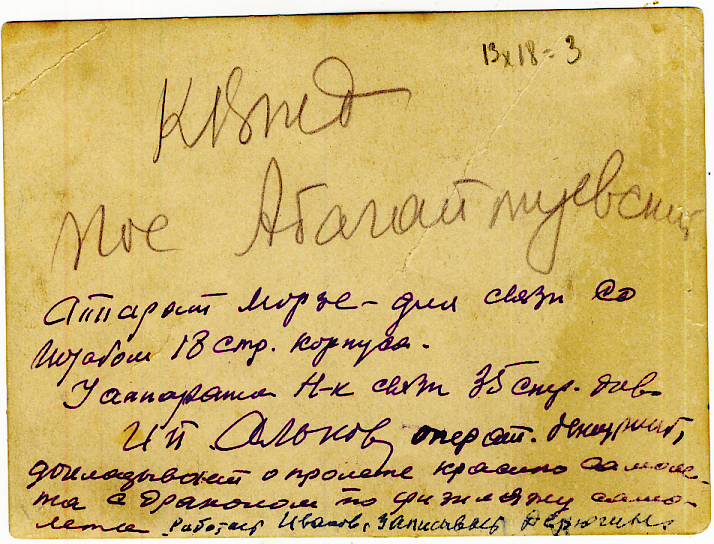 13х18=3
КВжд
пос Абагайтуевский
Аппарат Морзе - для связи со
штабом 18 стр. корпуса.
У аппарата Н-к связи 35 стр. див
операт. дежурный,
докладывает о пролете красного самоле-
та с драконом по фюзеляжу само-
лета Работает Иванов, Записывает